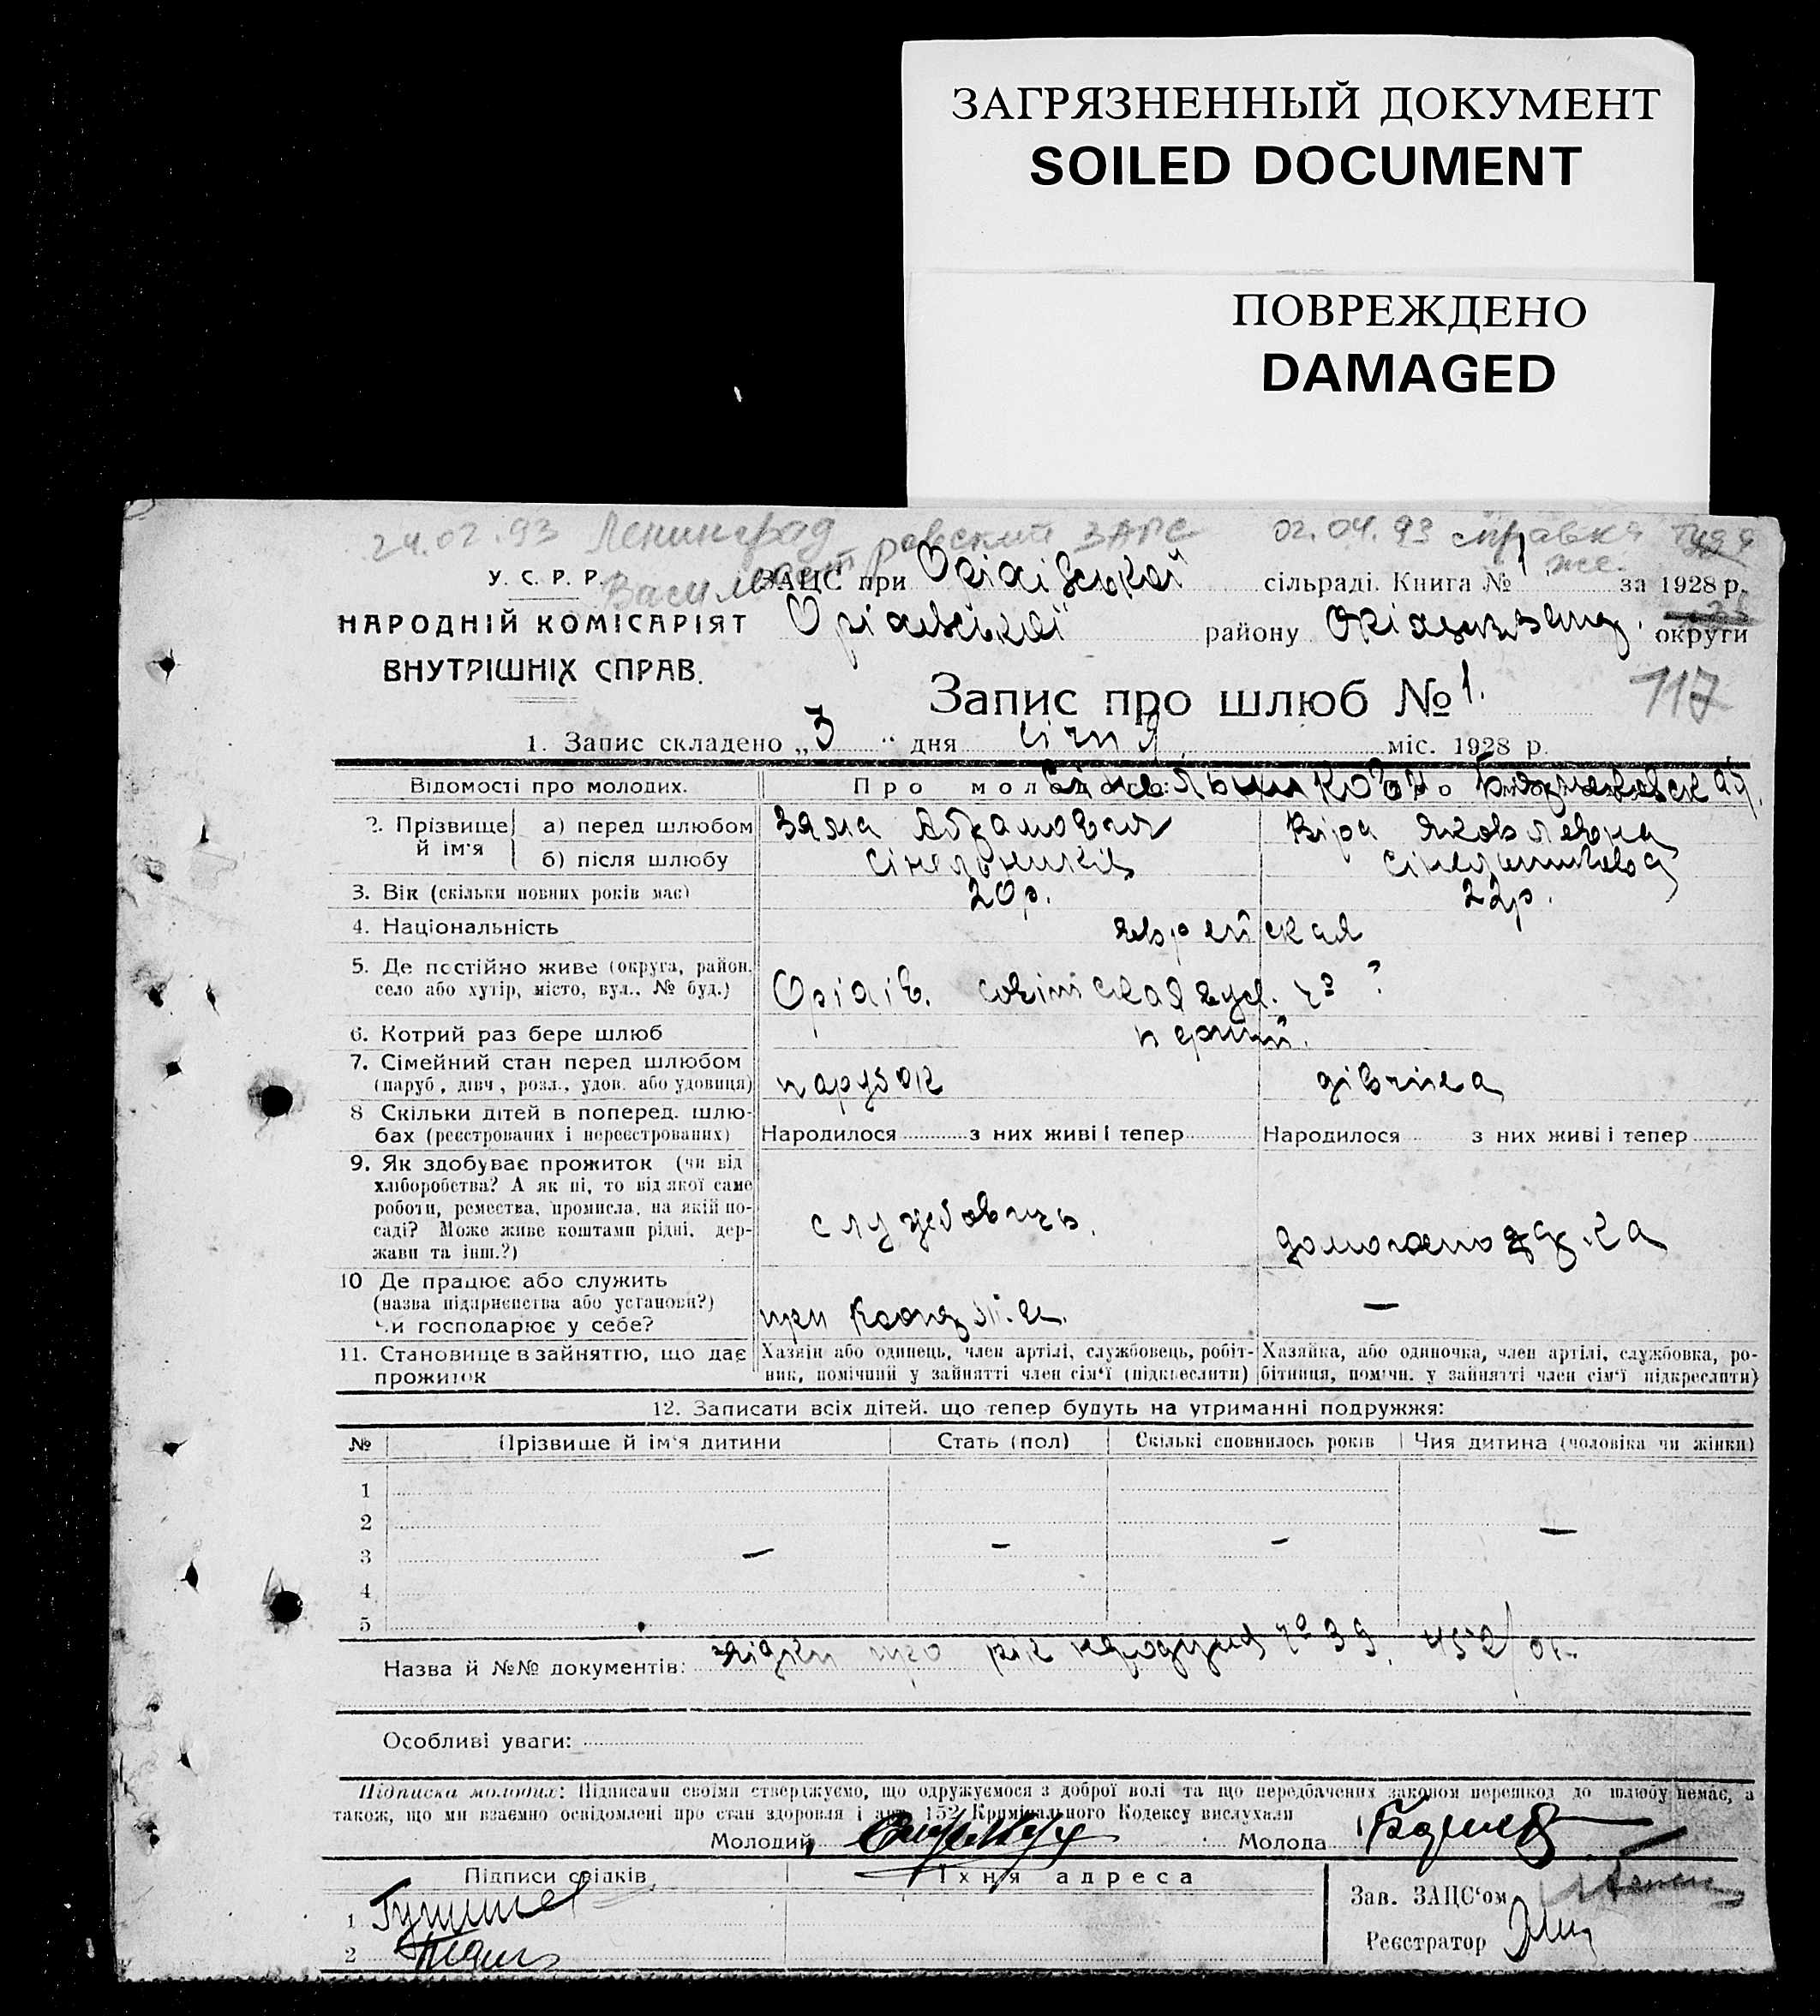 ЗАГРЯЗНЕННЫЙ ДОКУМЕНТ
SOILED DOCUMENT
ПОВРЕЖДЕНО
DAMAGED
24.02.93 Ленинград 02.04.93 справка туда
Василеостровский ЗАГС же.
У. С. Р. Р.
ЗАЦС при Оріхівської сільраді. Книга № 1 за 1928 р.
НАРОДНІЙ КОМІСАРІЯТ
Оріхівської району округи
ВНУТРІШНІХ СПРАВ.
Запис про шлюб № 1.
117
1. Запис складено „3“ дня січня міс. 1928 р.
Відомості про молодих. Про молодого: Про
Сінельників
2. Прізвище й ім'я
а) перед шлюбом Зяма Абрамович Віра Яковлевна
б) після шлюбу Сінельників Сінельнікова
3. Вік (скільки повних років має) 20р. 22р.
4. Національність еврейская
5. Де постійно живе (округа, район,
село або хутір, місто, вул., № буд.) Оріхів. вул. ?
6. Котрий раз бере шлюб перший.
7. Сімейний стан перед шлюбом
(паруб., дівч., розл., удов. або удовиця) парубок дівчина
8 Скільки дітей в поперед. шлю-
бах (реєстрованих і нереєстрованих) Народилося з них живі і тепер Народилося з них живі і тепер
9. Як здобуває прожиток (чи від
хліборобства? А як ні, то від якої саме
роботи, ремества, промисла, на якій по-
саді? Може живе коштами рідні, дер-
жави та інш.?) службовець. домогосподарка
10 Де працює або служить
(назва підприємства або установи?)
Чи господарює у себе? при —
11. Становище в зайняттю, що дає
прожиток
Хазяїн або одинець, член артілі, службовець, робіт-
ник, помічний у зайнятті член сім'ї (підкреслити)
Хазяйка, або одиночка, член артілі, службовка, ро-
бітниця, помічн. у зайнятті член сім'ї підкреслити)
12. Записати всіх дітей, що тепер будуть на утриманні подружжя:
№ Прізвище й ім'я дитини Стать (пол) Скількі сповнилось років Чия дитина (чоловіка чи жінки)
1
2
3 — — — —
4
5
Назва й №№ документів: про рік народження № 39, 452
Особливі уваги:
Підписка молодих: Підписами своїми стверджуємо, що одружуємося з доброї волі та що передбачених законом перешкод до шлюбу немає, а
також, що ми взаємно освідомлені про стан здоровля і арт. 152 Кримінального Кодексу вислухали
Молодий Молода
Підписи свідків Їхня адреса
Зав. ЗАЦС'ом
1
Реєстратор
2